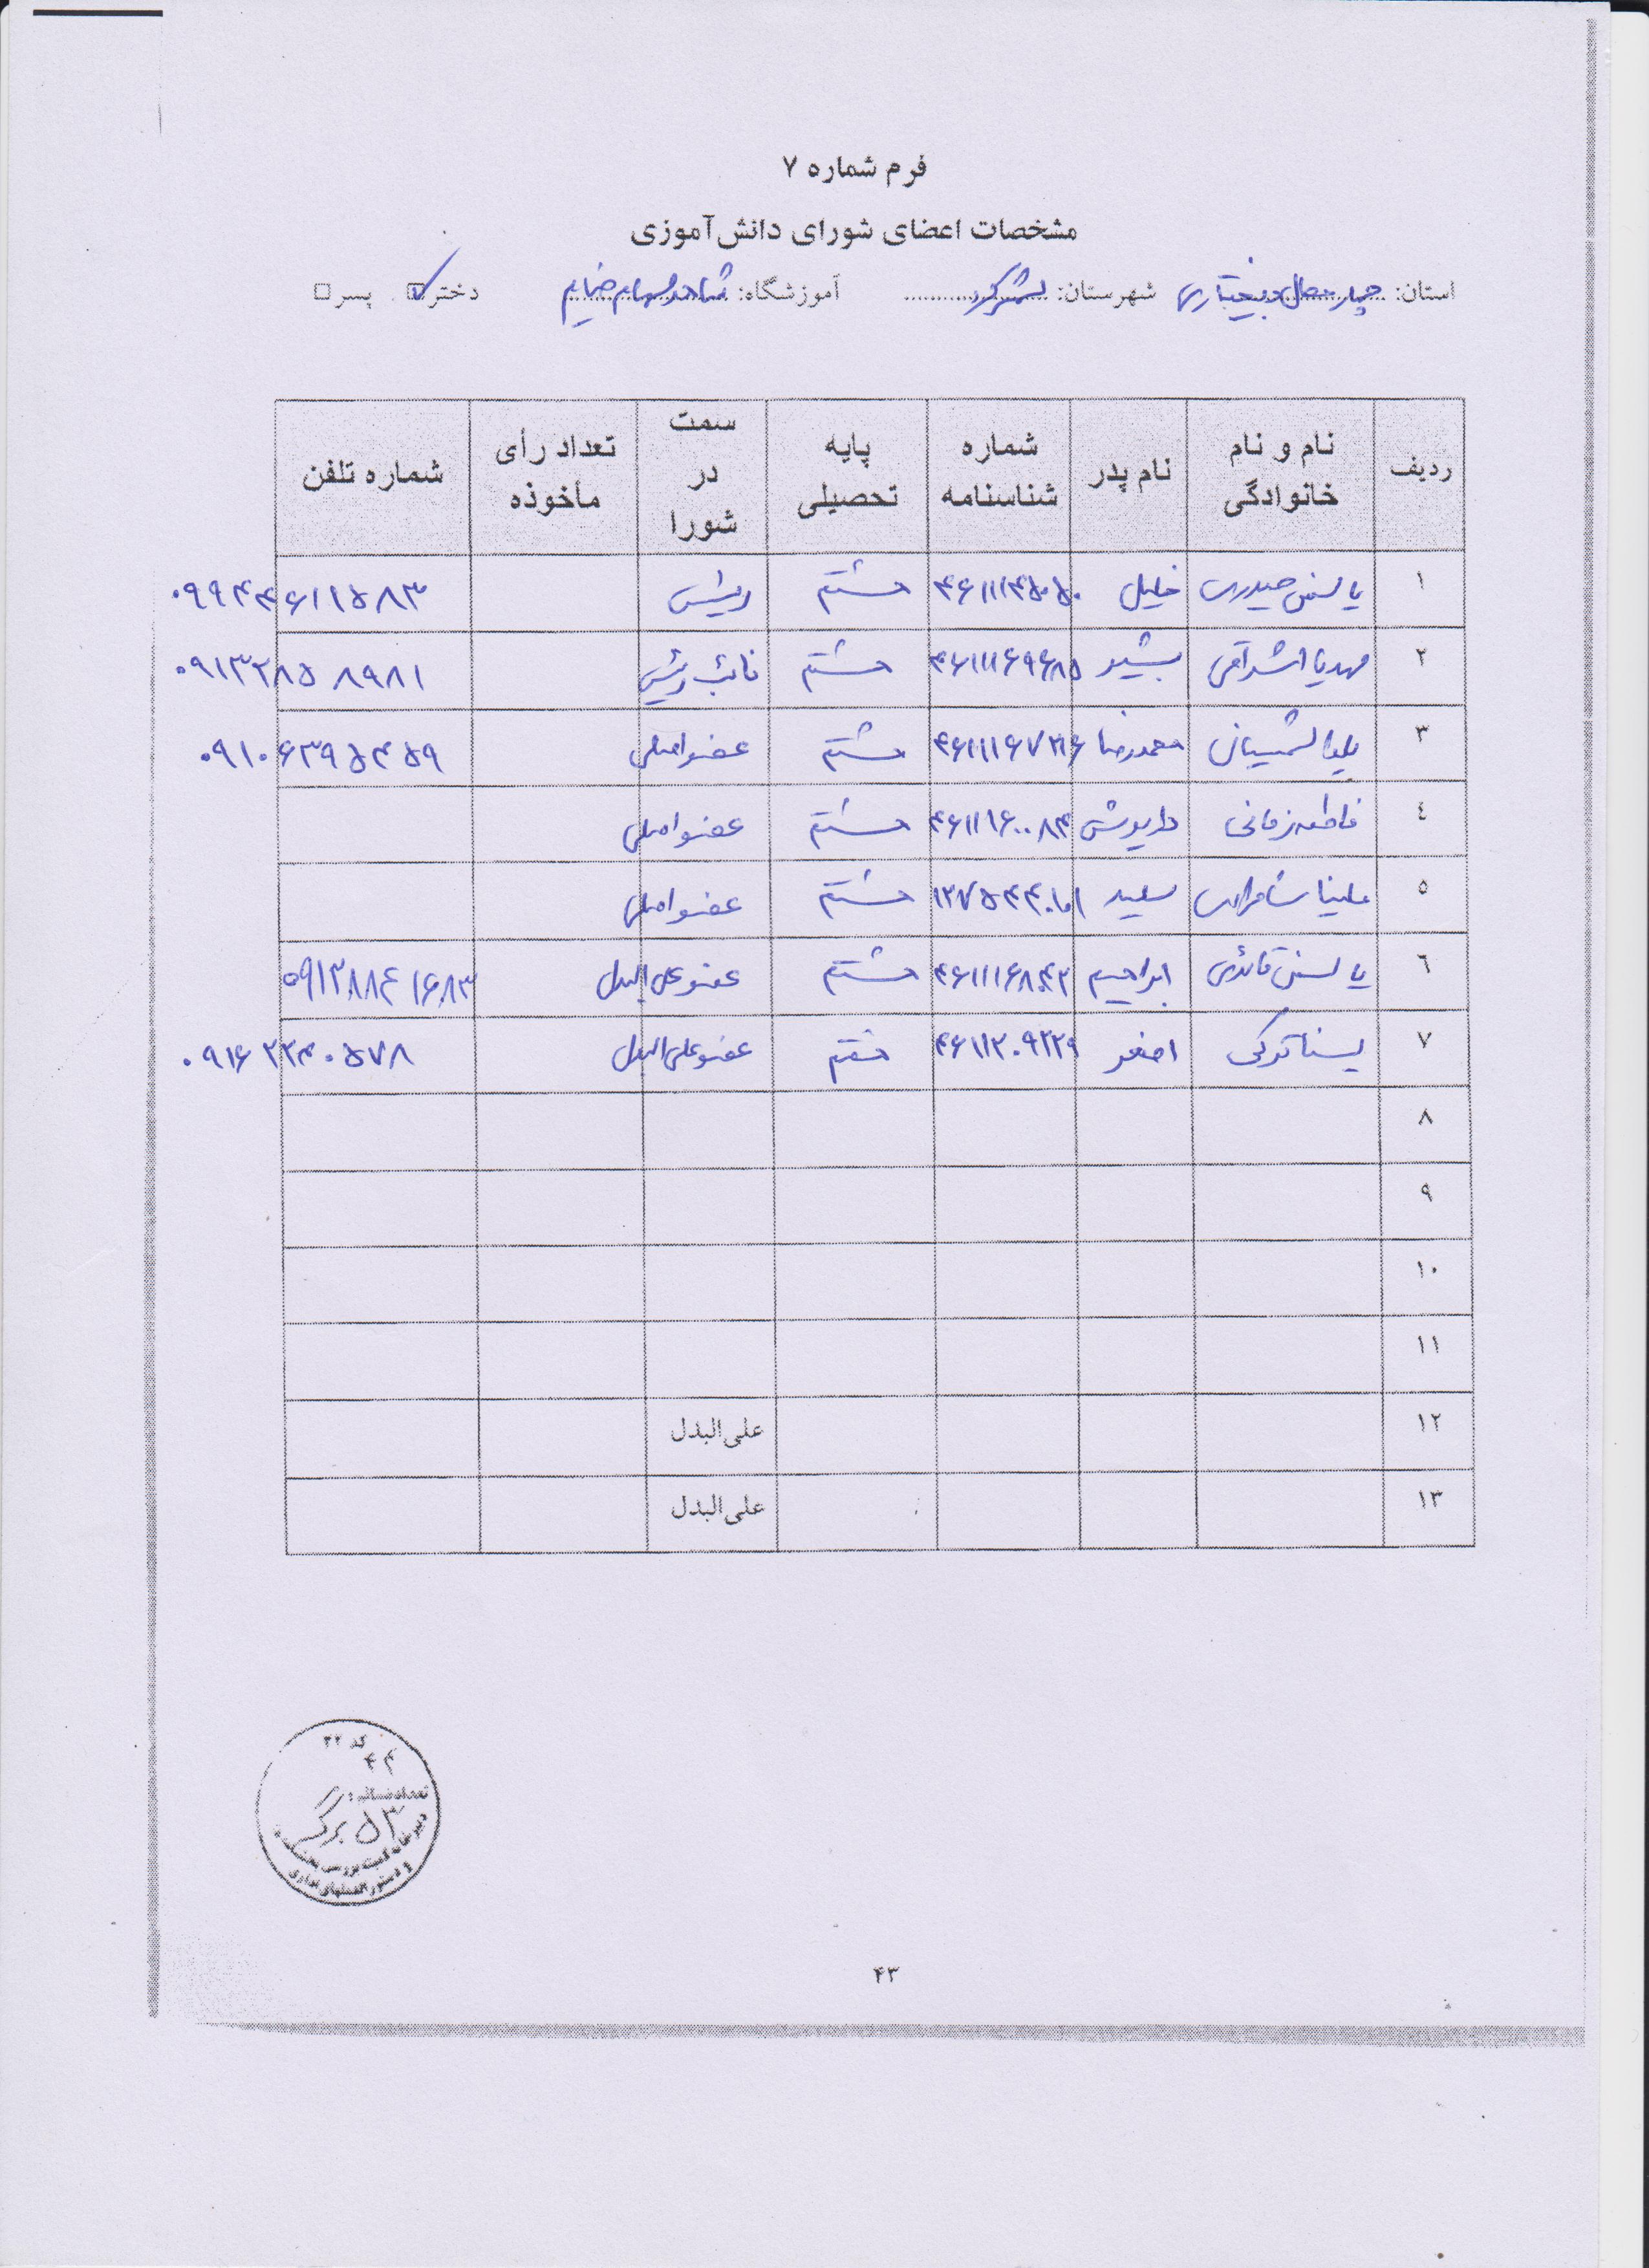 فرم شماره ۷
مشخصات اعضای شورای دانش‌آموزی
استان: چهارمحال و بختیاری شهرستان: شهرکرد آموزشگاه: شاهد دختر ☑ پسر □
ردیف نام و نام خانوادگی نام پدر شماره شناسنامه پایه تحصیلی سمت در شورا تعداد رأی مأخوذه شماره تلفن
۱ یاسمن حیدری خلیل ۴۶۱۱۱۴۵۰۵۰ هشتم رئیس ۰۹۹۴۴۶۱۱۵۸۳
۲ مهدیا اشراقی بشیر ۴۶۱۱۱۶۹۶۸۵ هشتم نائب رئیس ۰۹۱۳۲۸۵۸۹۸۱
۳ یلدا شمسیانی محمدرضا هشتم عضو اصلی ۰۹۱۰۶۳۹۵۴۵۹
۴ فاطمه زمانی داریوش ۴۶۱۱۱۶۰۰۸۴ هشتم عضو اصلی
۵ ملینا سعید هشتم عضو اصلی
۶ یاسمن قائدی ابراهیم هشتم عضو علی البدل ۰۹۱۳۸۸۴۱۶۸۳
۷ یسنا ترکی اصغر ۴۶۱۱۲۰۹۲۲۹ هفتم عضو علی البدل ۰۹۱۶۲۲۴۰۵۷۸
۸
۹
۱۰
۱۱
۱۲ علی‌البدل
۱۳ علی‌البدل
کد ۳۲
۴۴
۵۳ برگ
و دستورالعملهای اداری
۴۳